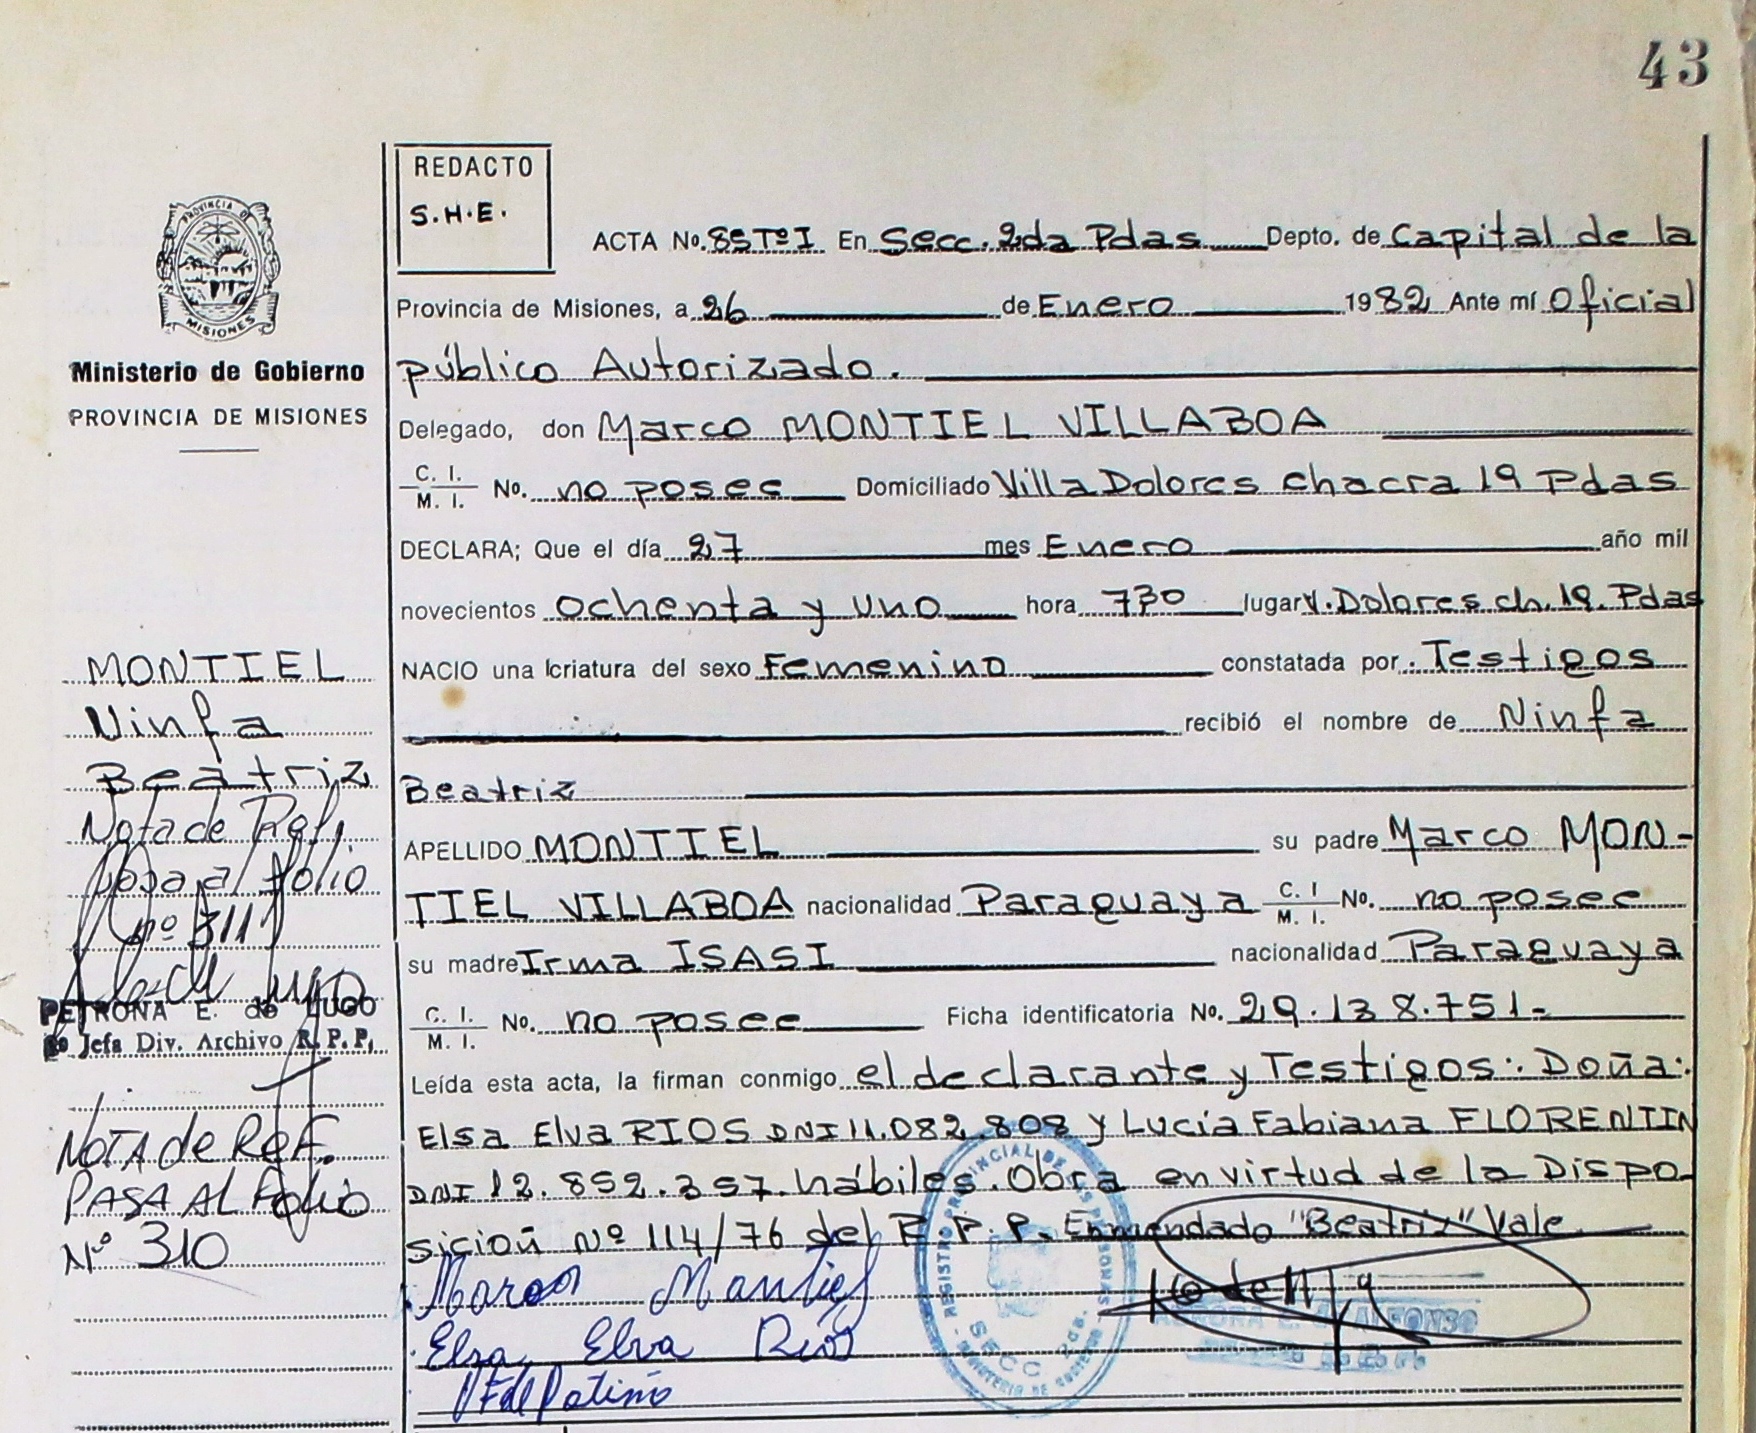 43
REDACTO
S.H.E.
ACTA No. 85 Tº I En Secc. 2da Pdas Depto. de Capital de la
Provincia de Misiones, a 26 de Enero 1982 Ante mí Oficial
público Autorizado.
Delegado, don Marco MONTIEL VILLABOA
C. I. M. I. No. no posee Domiciliado Villa Dolores chacra 19 Pdas
DECLARA; Que el día 27 mes Enero año mil
novecientos ochenta y uno hora 730 lugar V. Dolores ch. 19. Pdas
NACIO una criatura del sexo Femenino constatada por Testigos
recibió el nombre de Ninfa
Beatriz
APELLIDO MONTIEL su padre Marco MON-
TIEL VILLABOA nacionalidad Paraguaya C. I M. I. No. no posee
su madre Irma ISASI nacionalidad Paraguaya
C. I. M. I. No. no posee Ficha identificatoria No. 29.138.751-
Leída esta acta, la firman conmigo el declarante y Testigos: Doña:
Elsa Elva RIOS DNI 11.082.808 y Lucía Fabiana FLORENTIN
DNI 12.852.357. hábiles. Obra en virtud de la Dispo-
sicioñ Nº 114/76 del R. P. P. Enmendado "Beatriz" Vale
Marcos Montiel
Elsa Elva Rios
F de Patiño
REGISTRO PROVINCIAL DE LAS PERSONAS
SECC 2da.
MINISTERIO DE GOBIERNO
ALFONSO
PROVINCIA DE
MISIONES
Ministerio de Gobierno
PROVINCIA DE MISIONES
MONTIEL
Ninfa
Beatriz
Nota de Ref.
Pasa al folio
nº 311
PETRONA E. de LUGO
Jefa Div. Archivo R. P. P.
NOTA de Ref.
PASA AL Folio
Nº 310